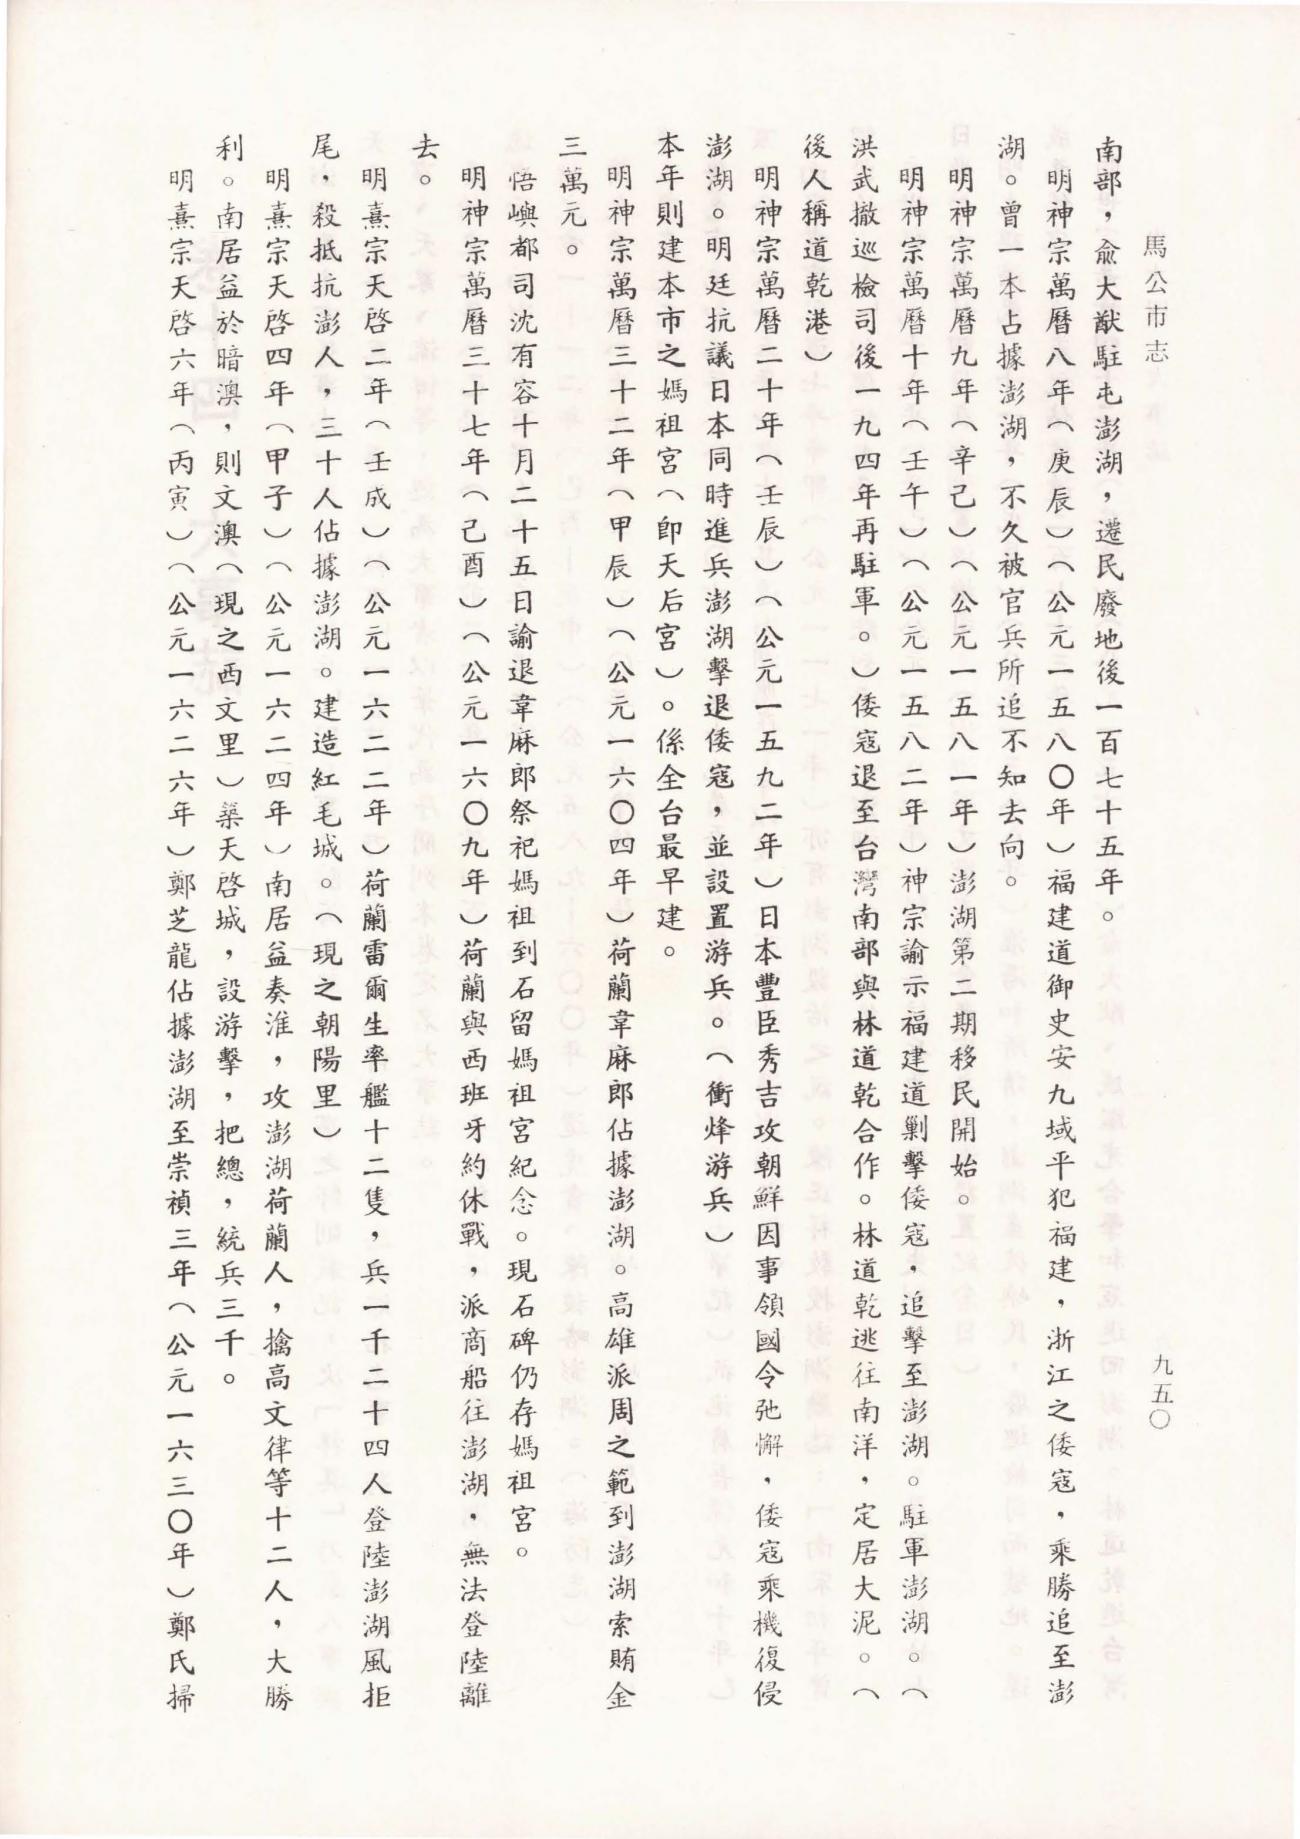 馬公市志
九五〇
南部，俞大猷駐屯澎湖，遷民廢地後一百七十五年。
明神宗萬曆八年（庚辰）（公元一五八〇年）福建道御史安九域平犯福建，浙江之倭寇，乘勝追至澎
湖。曾一本占據澎湖，不久被官兵所追不知去向。
明神宗萬曆九年（辛己）（公元一五八一年）澎湖第二期移民開始。
明神宗萬曆十年（壬午）（公元一五八二年）神宗諭示福建道剿擊倭寇，追擊至澎湖。駐軍澎湖。（
洪武撤巡檢司後一九四年再駐軍。）倭寇退至台灣南部與林道乾合作。林道乾逃往南洋，定居大泥。（
後人稱道乾港）
明神宗萬曆二十年（壬辰）（公元一五九二年）日本豐臣秀吉攻朝鮮因事領國令弛懈，倭寇乘機復侵
澎湖。明廷抗議日本同時進兵澎湖擊退倭寇，並設置游兵。（衝烽游兵）
本年則建本市之媽祖宮（卽天后宮）。係全台最早建。
明神宗萬曆三十二年（甲辰）（公元一六〇四年）荷蘭韋麻郎佔據澎湖。高雄派周之範到澎湖索賄金
三萬元。
悟嶼都司沈有容十月二十五日諭退韋麻郎祭祀媽祖到石留媽祖宮紀念。現石碑仍存媽祖宮。
明神宗萬曆三十七年（己酉）（公元一六〇九年）荷蘭與西班牙約休戰，派商船往澎湖，無法登陸離
去。
明熹宗天啓二年（壬成）（公元一六二二年）荷蘭雷爾生率艦十二隻，兵一千二十四人登陸澎湖風拒
尾，殺抵抗澎人，三十人佔據澎湖。建造紅毛城。（現之朝陽里）
明熹宗天啓四年（甲子）（公元一六二四年）南居益奏淮，攻澎湖荷蘭人，擒高文律等十二人，大勝
利。南居益於暗澳，則文澳（現之西文里）築天啓城，設游擊，把總，統兵三千。
明熹宗天啓六年（丙寅）（公元一六二六年）鄭芝龍佔據澎湖至崇禎三年（公元一六三〇年）鄭氏掃